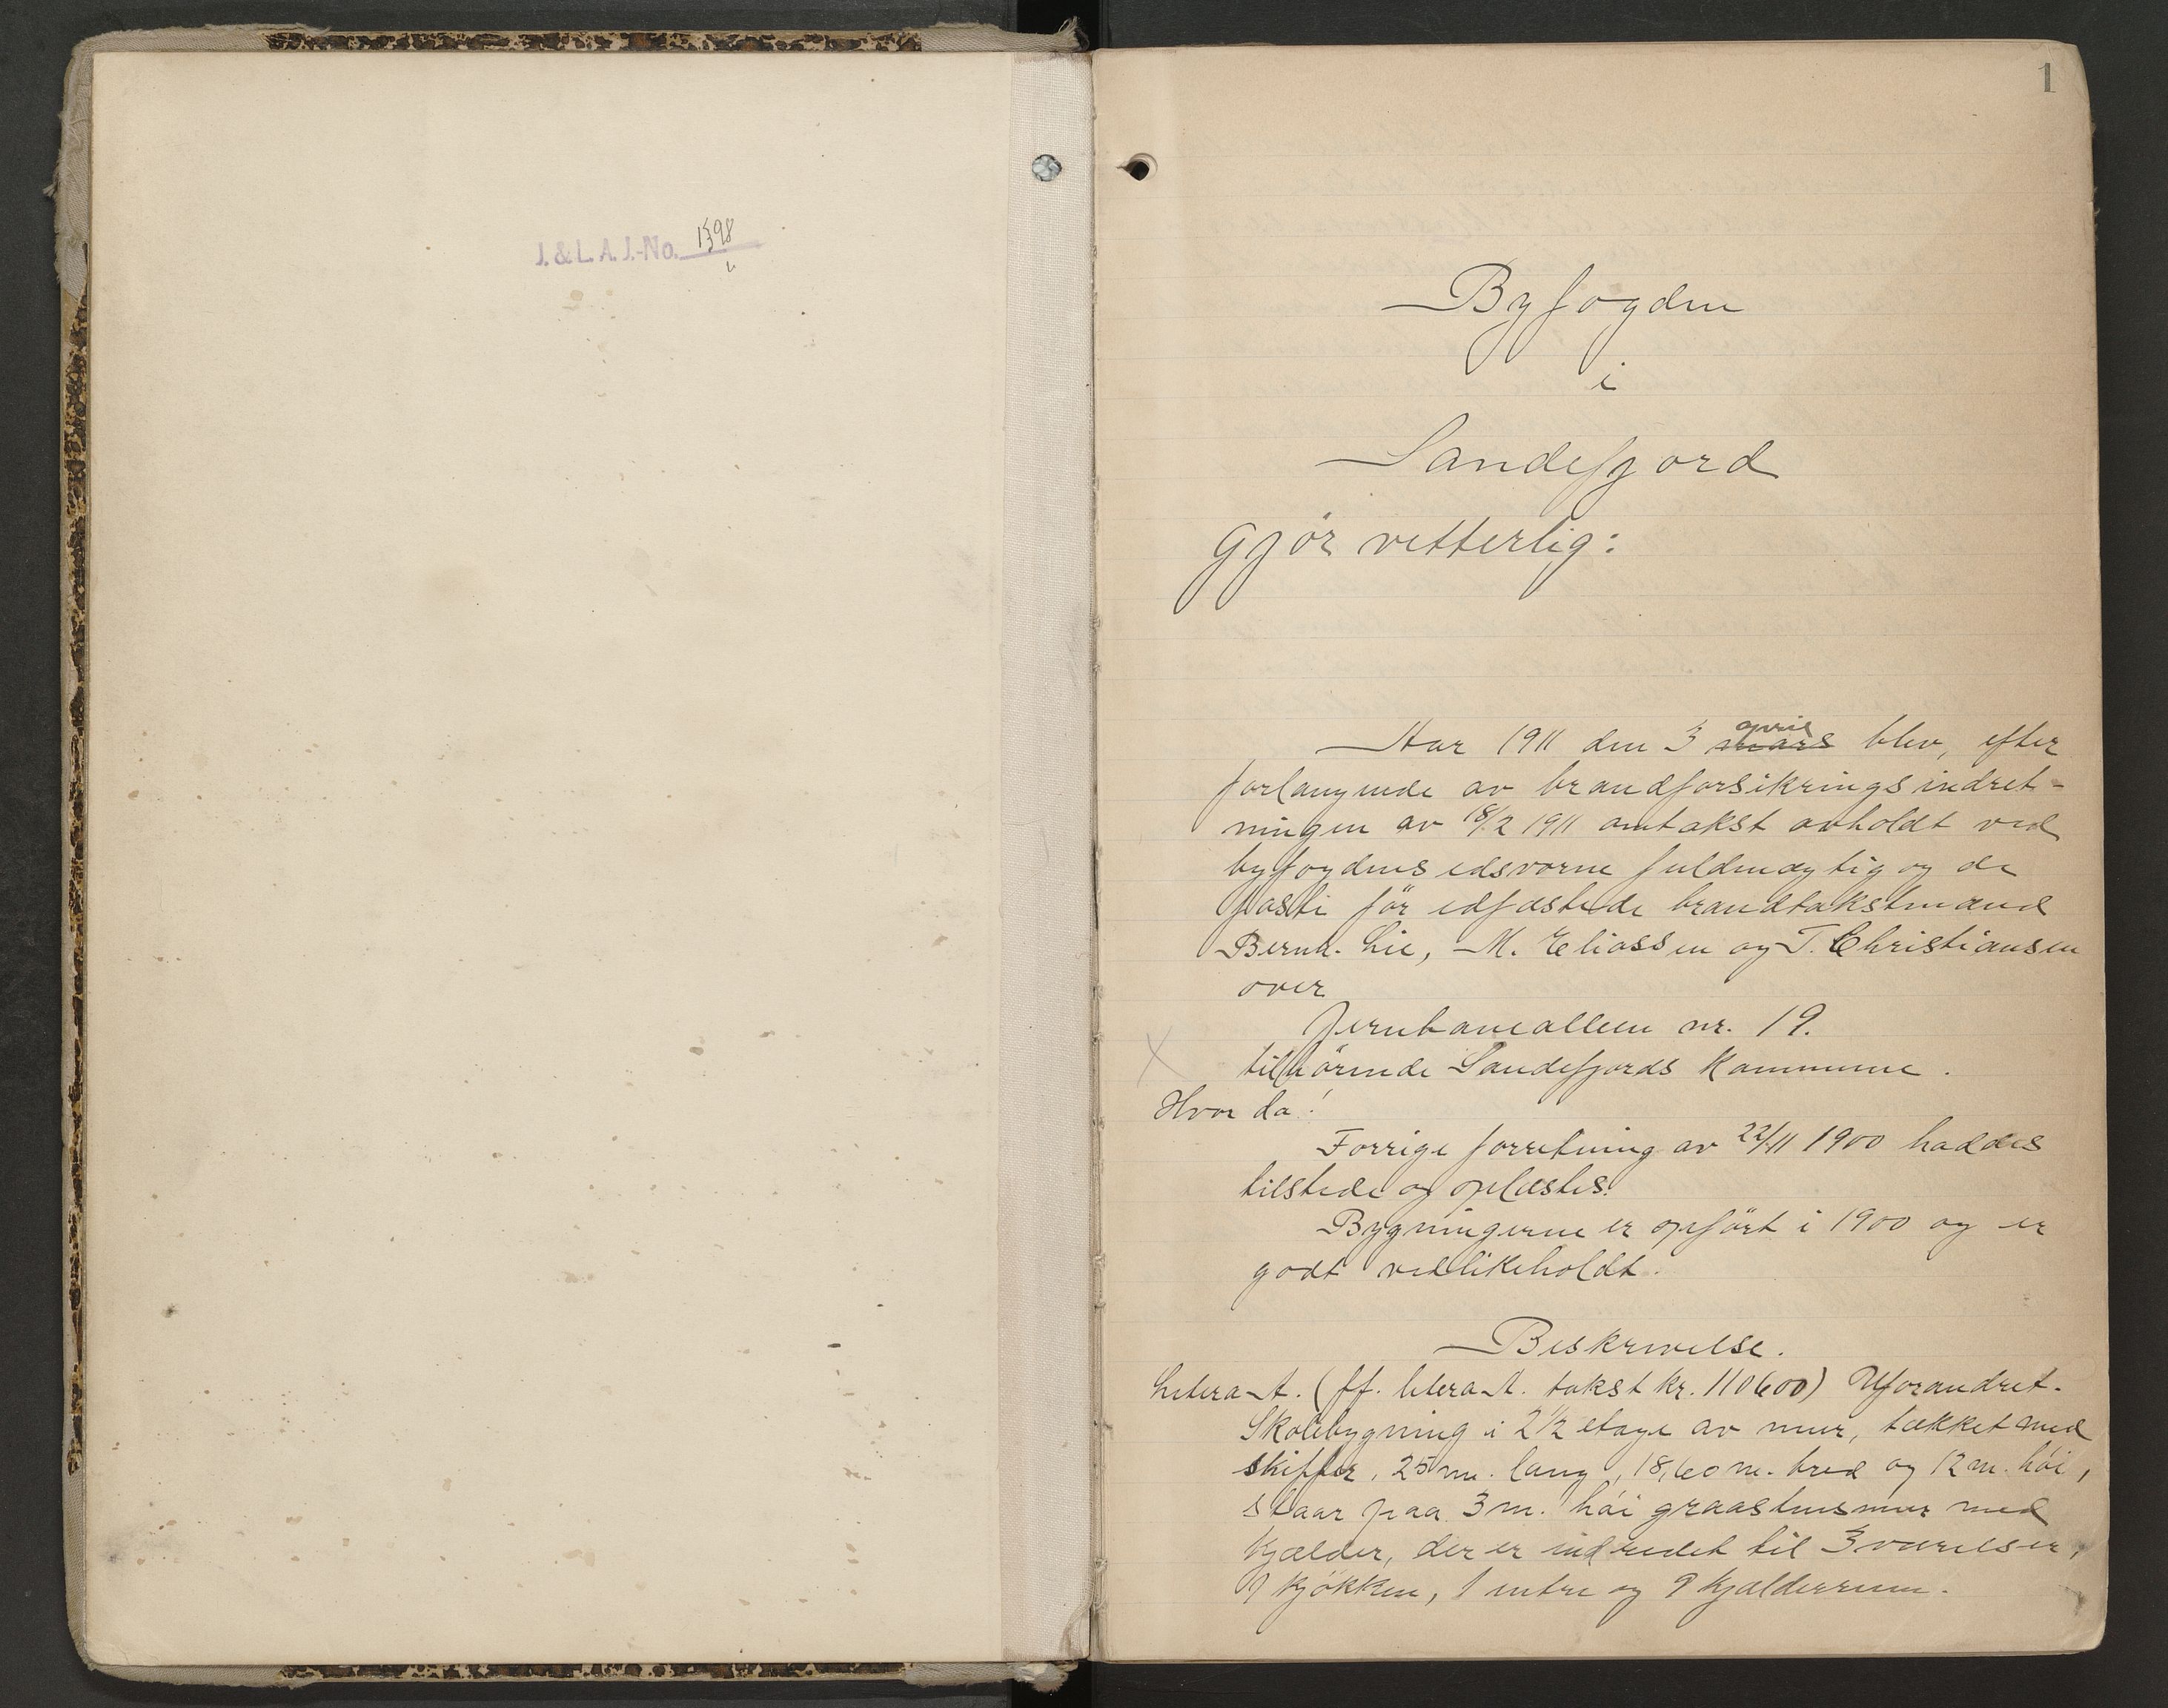 J. & L. A. J.-No. 1398
1
Byfogden
i
Sandefjord
gjör vitterlig:
Aar 1911 den 3 april mars blev, efter
forlangende av brandforsikringsindret-
ningen av 18/2 1911 omtakst avholdt ved
byfogdens edsvorne fuldmægtig og de
faste för edfæstede brandtakstmænd
Bernh. Lie, M. Eliassen og T. Christiansen
over
Jernbanealleen nr. 19.
tilhörende Sandefjords Kommune.
Hvor da!
Forrige forretning av 22/11 1900 haddes
tilstede og oplæstes.
Bygningerne er opfört i 1900 og er
godt vedlikeholdt.
Beskrivelse.
Litera A. (ff. litera A. takst kr. 110600) Uforandret.
Skolebygning i 2 1/2 etage av mur, tækket med
skiffer, 25 m. lang, 18,60 m. bred og 12 m. höi,
staar paa 3 m. höi graastensmur med
kjælder, der er indredet til 3 værelser,
1 kjökken, 1 entre og 9 kjælderrum.